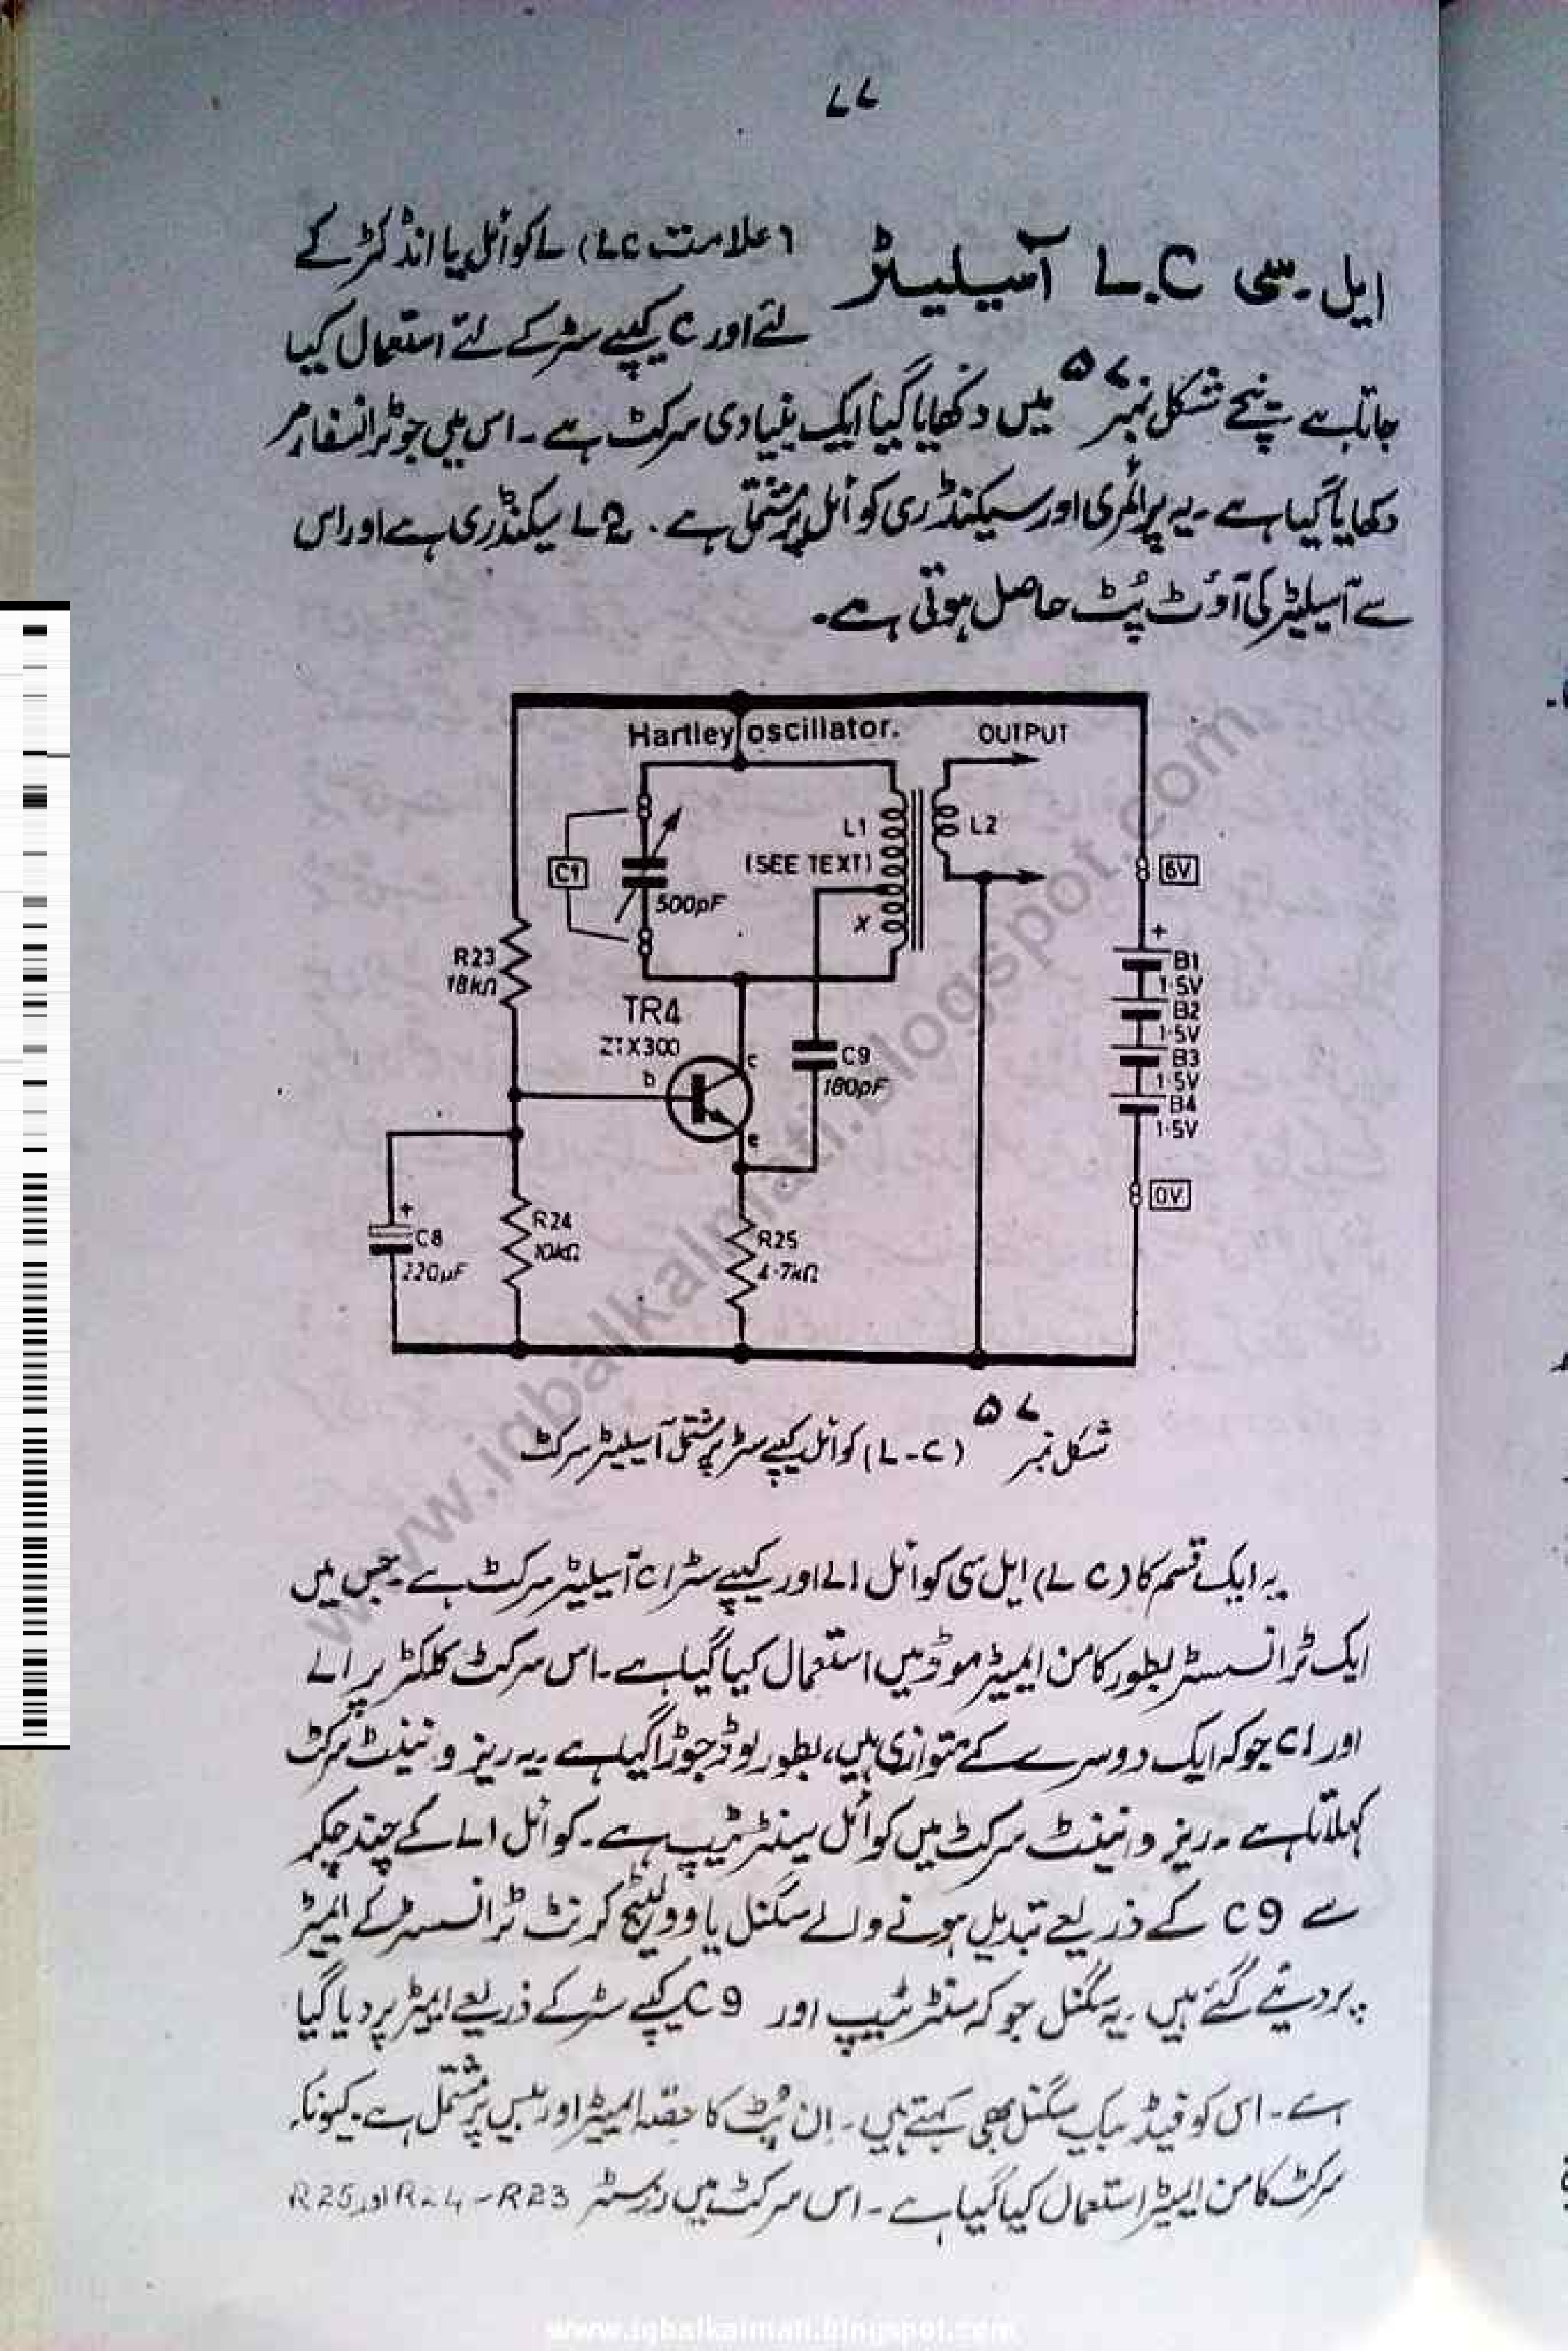 ۷۷
ایل۔سی L.C آسیلیٹر
(علامت LC) L کوائل یا انڈکٹر کے
لئے اور C کیپے سٹر کے لئے استعمال کیا
جاتا ہے نیچے شکل نمبر ۵۷ میں دکھایا گیا ایک بنیادی سرکٹ ہے۔ اس میں جو ٹرانسفارمر
دکھایا گیا ہے۔ یہ پرائمری اور سیکنڈری کوائل پر مشتمل ہے۔ L2 سیکنڈری ہے اور اس
سے آسیلیٹر کی آؤٹ پُٹ حاصل ہوتی ہے۔
Hartley oscillator.
OUTPUT
L1
L2
(SEE TEXT)
C1
500pF
X
6V
R23
18kΩ
+
B1
1·5V
B2
1·5V
B3
1·5V
B4
1·5V
TR4
ZTX300
b
c
e
C9
180pF
0V
+
C8
220µF
R24
10kΩ
R25
4·7kΩ
شکل نمبر ۵۷ (L-C) کوائل کیپے سٹر پر مشتمل آسیلیٹر سرکٹ
یہ ایک قسم کا (L C) ایل سی کوائل L1 اور کیپے سٹر C1 آسیلیٹر سرکٹ ہے۔ جس میں
ایک ٹرانسسٹر بطور کامن ایمیٹر موڈ میں استعمال کیا گیا ہے۔ اس سرکٹ کلکٹر پر L1
اور C1 جو کہ ایک دوسرے کے متوازی ہیں، بطور لوڈ جوڑا گیا ہے۔ یہ ریزونینٹ سرکٹ
کہلاتا ہے۔ ریزونینٹ سرکٹ میں کوائل سینٹر ٹیپ ہے۔ کوائل L1 کے چند چکر
سے C9 کے ذریعے تبدیل ہونے والے سگنل یا وولٹیج کرنٹ ٹرانسسٹر کے ایمیٹر
پر دیئے گئے ہیں۔ یہ سگنل جو کہ سنٹر ٹیپ اور C9 کیپے سٹر کے ذریعے ایمیٹر پر دیا گیا
ہے۔ اس کو فیڈ بیک سگنل بھی کہتے ہیں۔ اِن پُٹ کا حصہ ایمیٹر اور بیس پر مشتمل ہے۔ کیونکہ
سرکٹ کامن ایمیٹر استعمال کیا گیا ہے۔ اس سرکٹ میں رزسٹر R23 - R24 اور R25
www.iqbalkalmati.blogspot.com
www.iqbalkalmati.blogspot.com